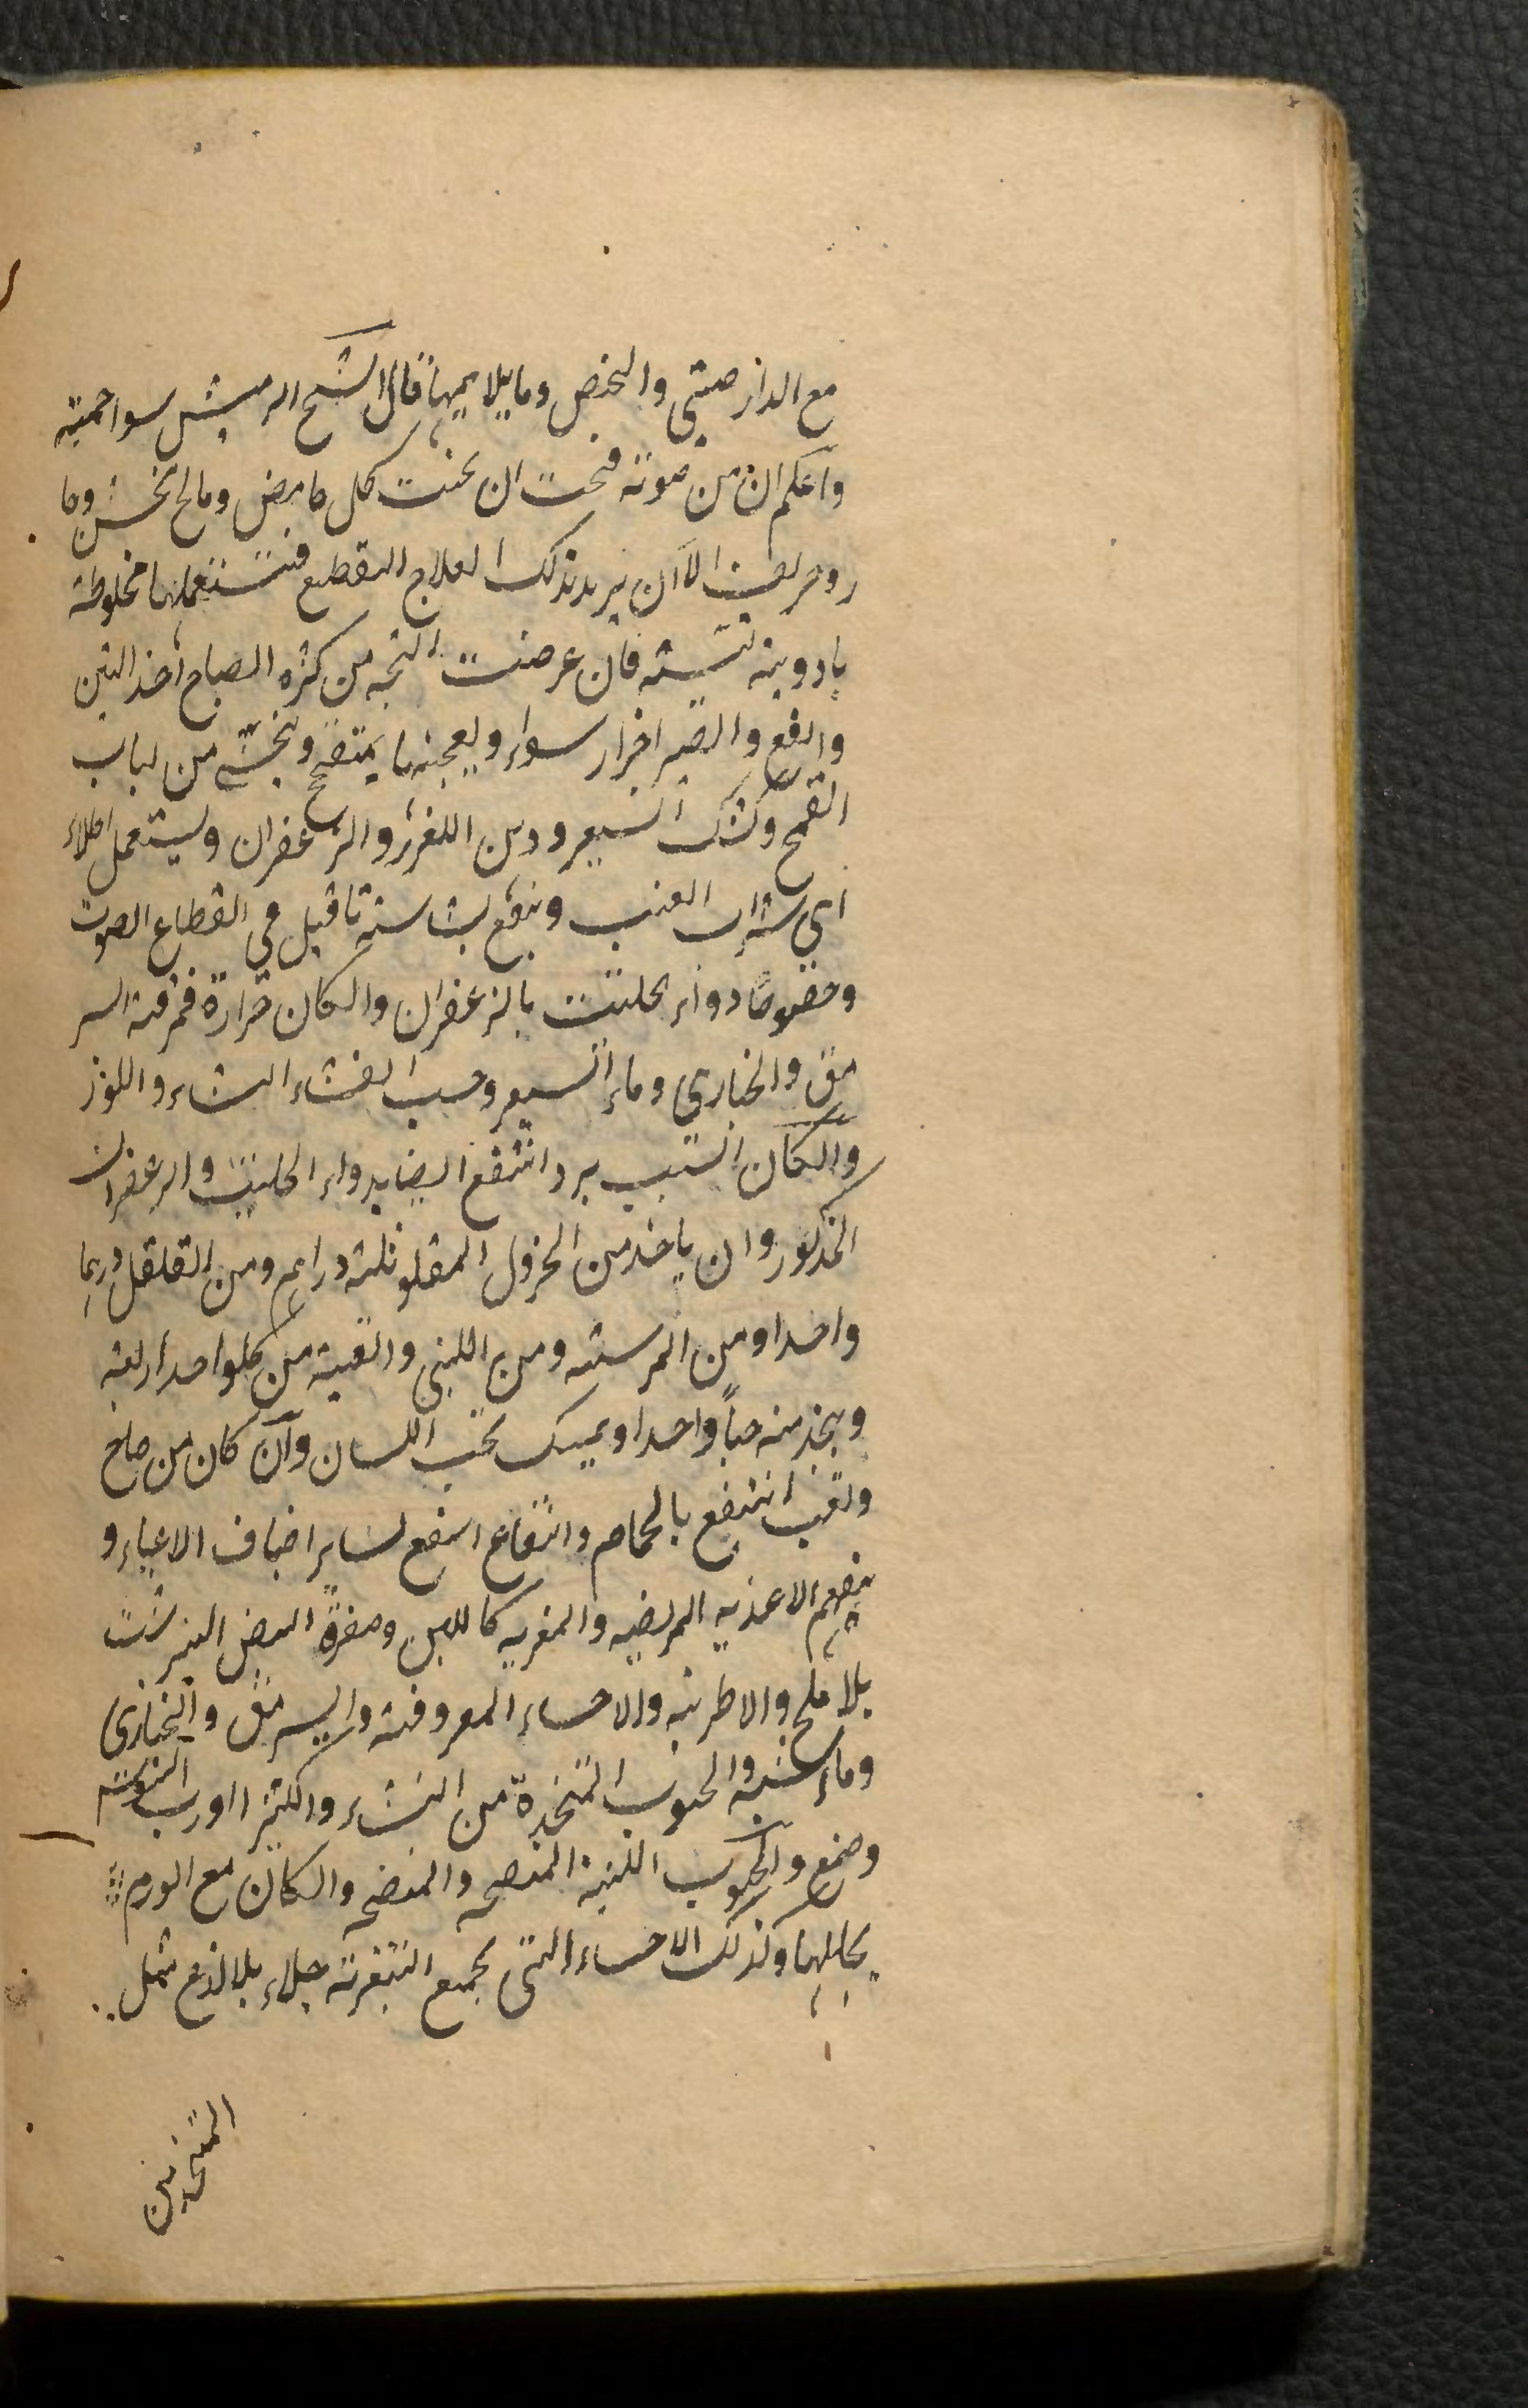 مع الدارصيني والحمص وما يلايمها قال الشيخ الرئيس سواحمية
واعلم ان من صوته فيجب ان يجتنب كل حامض ومالح خشن وحا
د وحريف الا ان يريد بذلك العلاج التقطيع فيستعملها مخلوطة
بادوية لينة فان عرضت البحة من كثرة الصياح اخذ التين
والنعنع والصبر اجزاء سواء ويعجنها بميفختج ويحسى من لباب
القمح وكشك الشعير ودهن اللوز والزعفران ويستعمل اطلاء
اي شراب العنب وينفع بسياسة ما قيل في انقطاع الصوت
وخصوصا دواء الحلتيت بالزعفران وان كان حرارة فمرقة السر
مق والخبازي وماء الشعير وحب القثاء النشاء واللوز
وان كان السبب برد انتفع ايضا بدواء الحلتيت والزعفران
المذكور وان ياخذ من الخردل المقلو ثلثة دراهم ومن الفلفل درهما
واحدا ومن الكرسنه ومن اللبنى والقنة من كلواحد اربعة
ويتخذ منه حبا واحدا ويمسك تحت اللسان وان كان من صياح
وتعب انتفع بالحمام وانتفاع انتفع لساير اصناف الاعياء و
ينفعهم الاغذيه المرخيه والمغريه كاللبن وصفرة البيض النيمرشت
بلا ملح والاطريه والاحساء المعروفة والسرمق والخبازى
وماء شنبه والحبوب المتخذة من النشاء والكثيرا ورب السوس
وصمغ والحبوب اللينة المنضجه والمنضجه وان كان مع الورم
يحللها وكذلك الاحساء التي تجمع التغرية جلاء بلا لذع مثل
المتخذ من